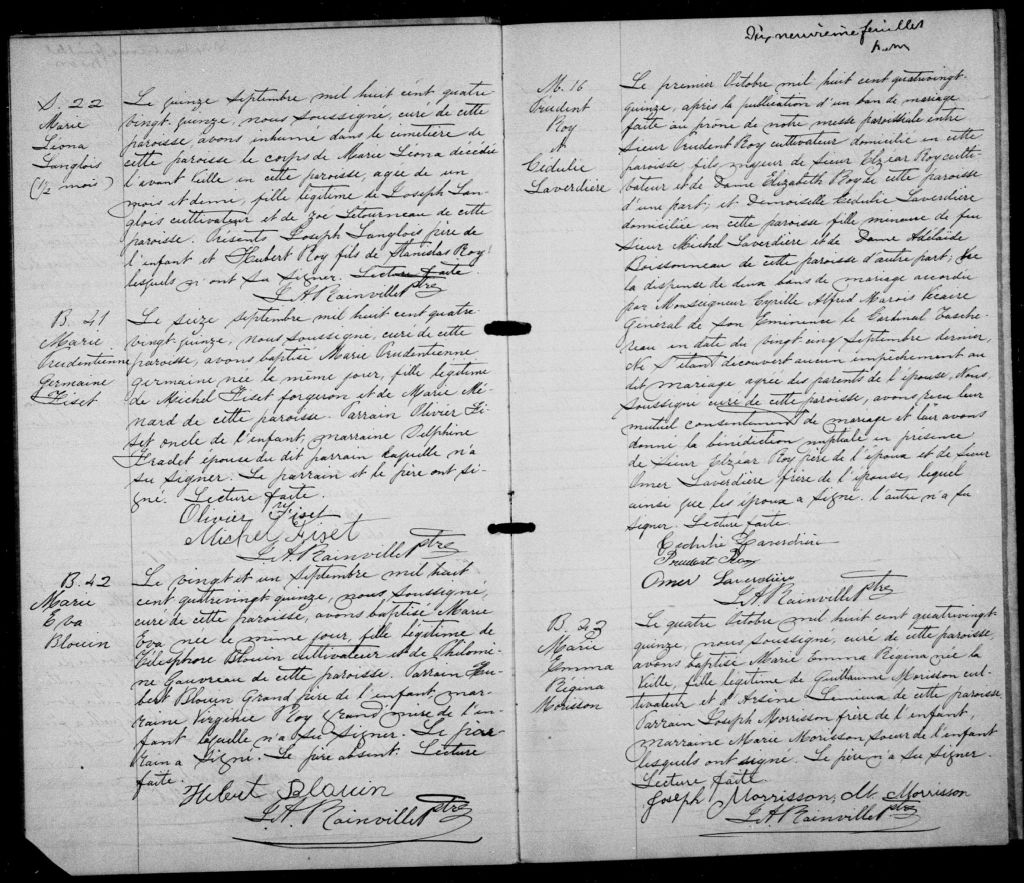 S. 22
Marie
Léona
Langlois
(1/2 mois)
Le quinze septembre mil huit cent quatre
vingt-quinze, nous soussigné, curé de cette
paroisse, avons inhumé dans le cimetière de
cette paroisse le corps de Marie Léona décédée
l'avant veille en cette paroisse, agée de un
mois et demi, fille légitime de Joseph Lan-
glois cultivateur et de Zoé Letourneau de cette
paroisse. Présents Joseph Langlois père de
l'enfant et Hubert Roy fils de Stanislas Roy
lesquels n'ont su signer. Lecture faite.
J. A. Rainville Ptre
B. 41
Marie
Prudentienne
Germaine
Fiset
Le seize septembre mil huit cent quatre-
vingt-quinze, nous soussigné, curé de cette
paroisse, avons baptisé Marie Prudentienne
Germaine née le même jour, fille légitime
de Michel Fiset forgeron et de Marie Mé-
nard de cette paroisse. Parrain Olivier Fi-
set oncle de l'enfant, marraine Delphine
Fradet épouse du dit parrain laquelle n'a
su signer. Le parrain et le père ont si-
gné. Lecture faite.
Olivier Fiset
Michel Fiset
J. A. Rainville Ptre
B. 42
Marie
Eva
Blouin
Le vingt et un septembre mil huit
cent quatrevingt-quinze, nous soussigné,
curé de cette paroisse, avons baptisé Marie
Eva née le même jour, fille légitime de
Télesphore Blouin cultivateur et de Philomè-
ne Gauvreau de cette paroisse. Parrain Hu-
bert Blouin Grand père de l'enfant, mar-
raine Virginie Roy grand'mère de l'en-
fant laquelle n'a su signer. Le par-
rain a signé. Le père absent. Lecture
faite.
Hebert Blouin
J. A. Rainville Ptre
Dix neuvième feuillet
M. 16
Prudent
Roy
&
Cédulie
Laverdière
Le premier Octobre mil huit cent quatrevingt-
quinze, après la publication d'un ban de mariage
faite au prône de notre messe paroissiale entre
Sieur Prudent Roy cultivateur domicilié en cette
paroisse, fils majeur de Sieur Elzéar Roy culti-
vateur et de Dame Elizabeth Roy de cette paroisse
d'une part; et Demoiselle Cédulie Laverdière
domiciliée en cette paroisse fille mineure de feu
Sieur Michel Laverdière et de Dame Adélaïde
Boissonneau de cette paroisse d'autre part; Vu
la dispense de deux bans de mariage accordée
par Monseigneur Cyrille Alfred Marois Vicaire
Général de son Eminence le Cardinal Tasche-
reau en date du vingt cinq Septembre dernier,
Ne s'étant découvert aucun empêchement au
dit mariage agrée des parents de l'épouse, Nous
soussigné curé de cette paroisse, avons reçu leur
mutuel consentement de mariage et leur avons
donné la bénédiction nuptiale en présence
de Sieur Elzéar Roy père de l'époux et de Sieur
Omer Laverdière frère de l'épouse, lequel
ainsi que les époux a signé. l'autre n'a su
signer. Lecture faite.
Cedulie Laverdière
Prudent Roy
Omer Laverdière
J. A. Rainville Ptre
B. 23
Marie
Emma
Régina
Morisson
Le quatre Octobre mil huit cent quatrevingt-
quinze, nous soussigné, curé de cette paroisse,
avons baptisé Marie Emma Régina née la
veille, fille légitime de Guillaume Morisson cul-
tivateur et d'Arsène Lemieux de cette paroisse,
Parrain Joseph Morrisson frère de l'enfant,
marraine Marie Morisson soeur de l'enfant
lesquels ont signé. Le père n'a su signer.
Lecture faite.
Joseph Morrisson, M. Morrisson
J. A. Rainville Ptre